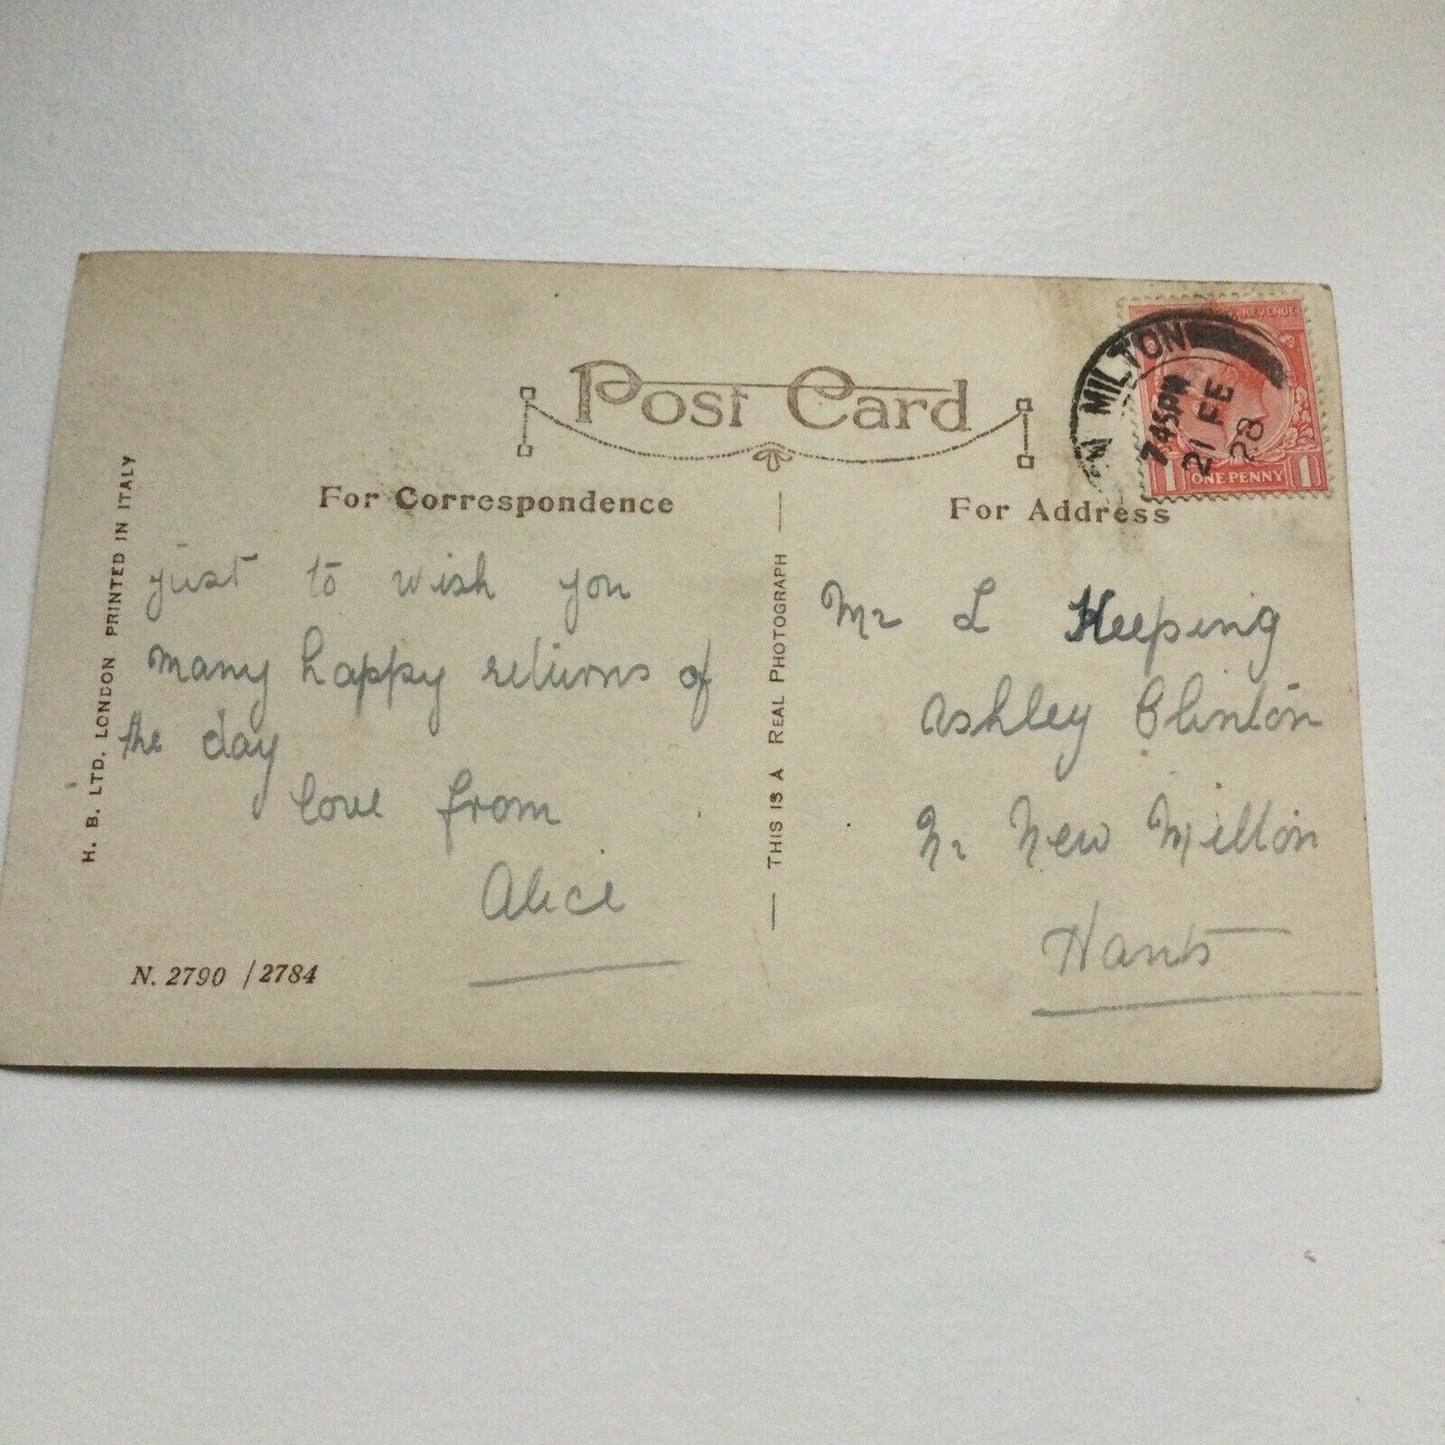 Post Card
For Correspondence
For Address
H. B. LTD. LONDON. PRINTED IN ITALY
THIS IS A REAL PHOTOGRAPH
N. 2790 / 2784
just to wish you
many happy returns of
the day
love from
Alice
Mr L Keeping
Ashley Clinton
Nr New Milton
Hants
MILTON
7 45 PM
21 FE
28
REVENUE
1 ONE PENNY 1